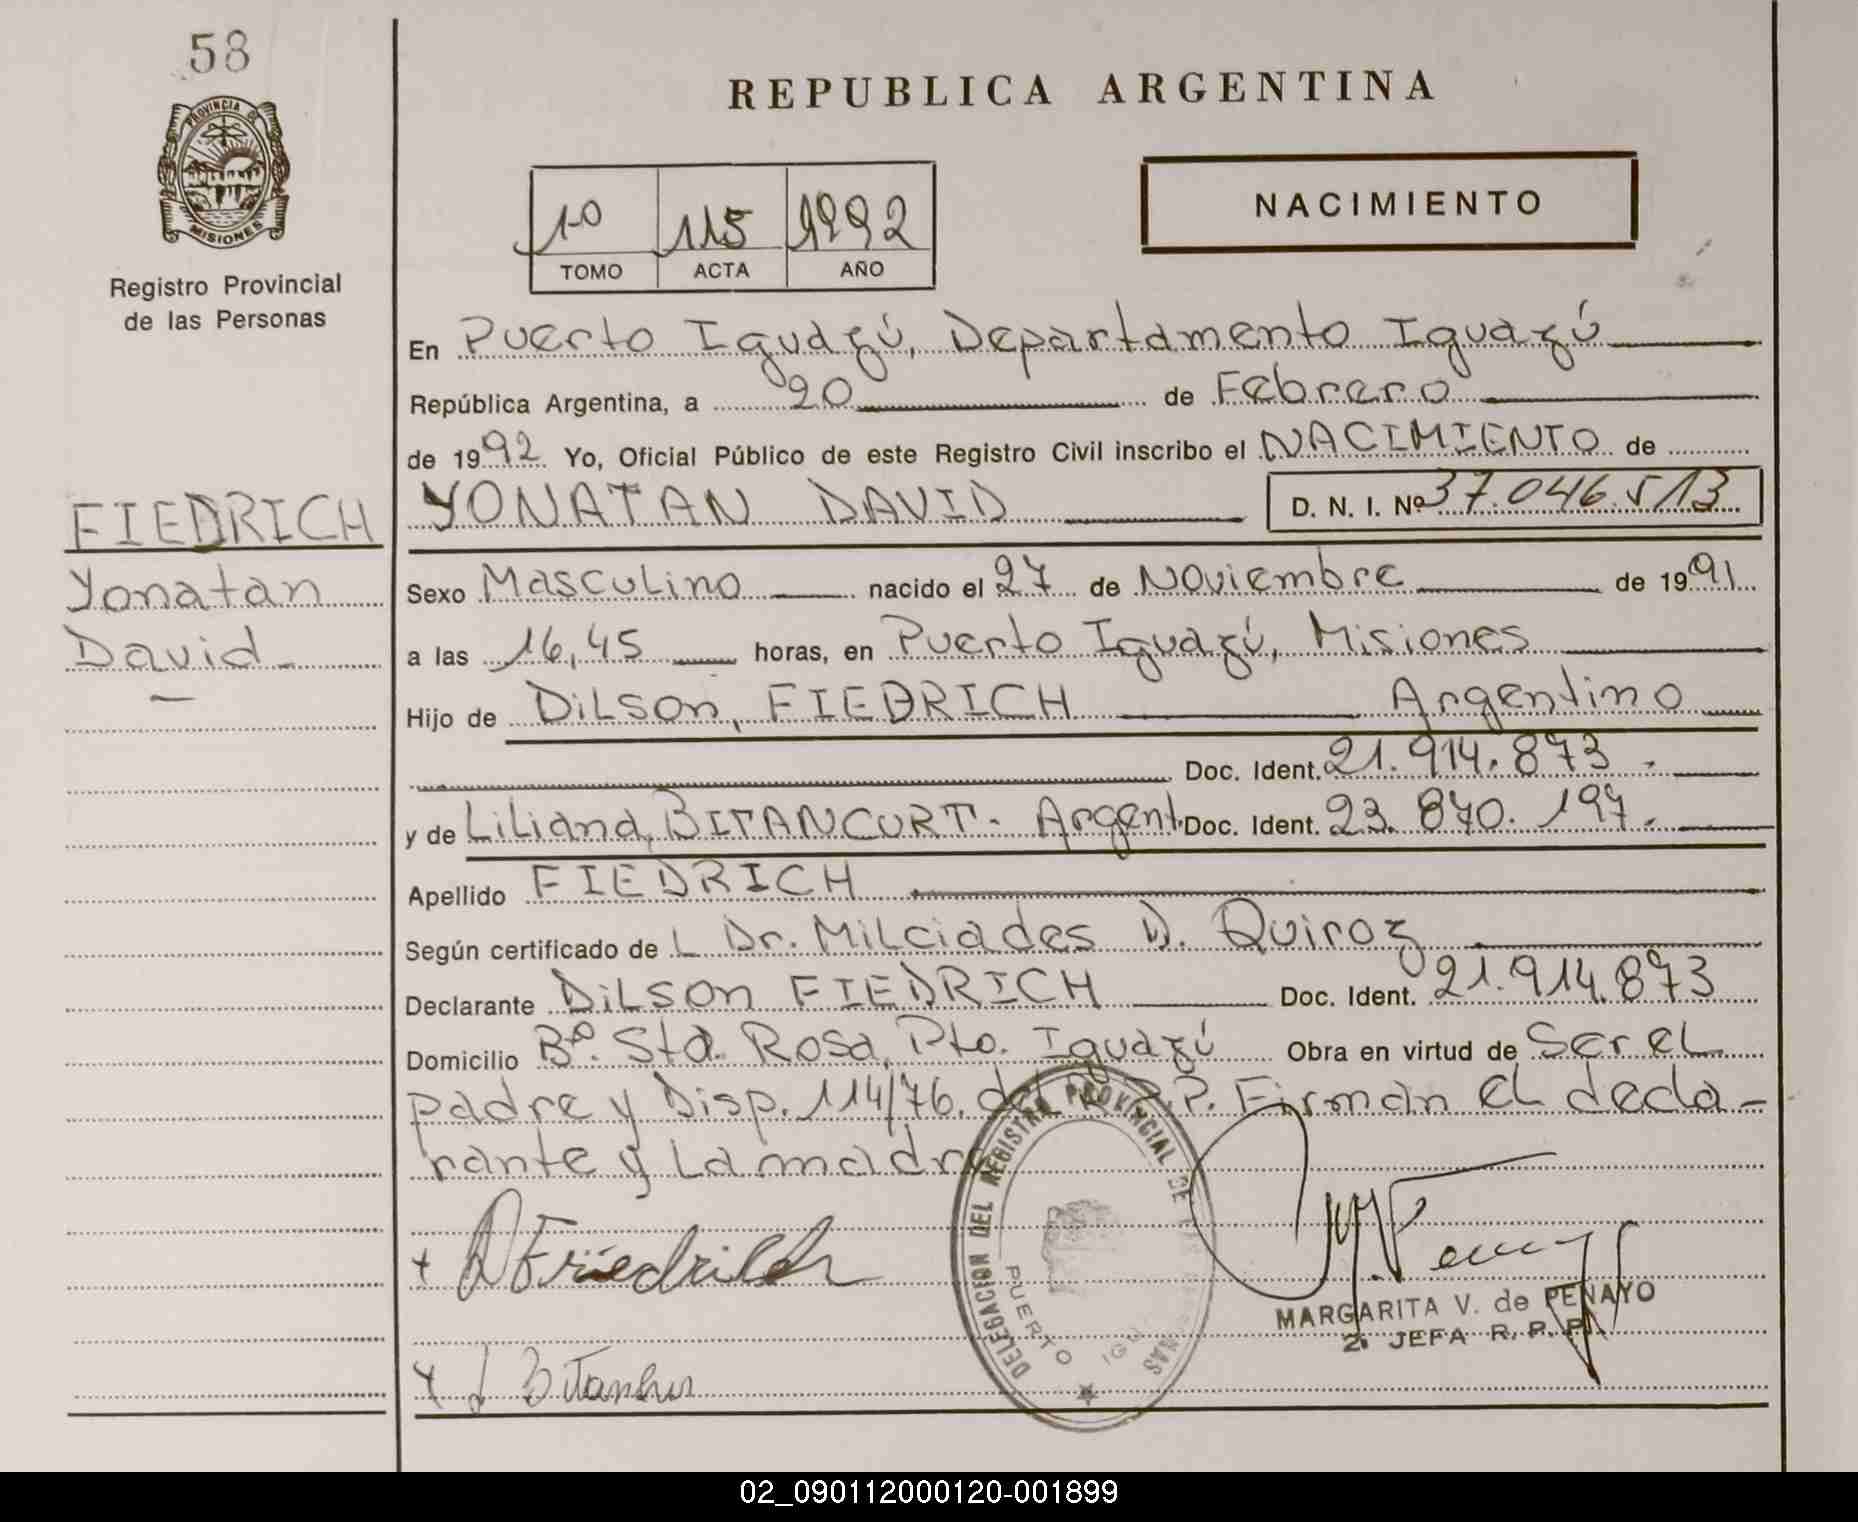 58
PROVINCIA DE
MISIONES
Registro Provincial
de las Personas
FIEDRICH
Yonatan
David
REPUBLICA ARGENTINA
10 115 1992
TOMO ACTA AÑO
NACIMIENTO
En Puerto Iguazú, Departamento Iguazú
República Argentina, a 20 de Febrero
de 1992 Yo, Oficial Público de este Registro Civil inscribo el NACIMIENTO de
YONATAN DAVID D. N. I. Nº 37.046.513
Sexo Masculino nacido el 27 de Noviembre de 1991
a las 16,45 horas, en Puerto Iguazú, Misiones
Hijo de Dilson, FIEDRICH Argentino
Doc. Ident. 21.914.873.
y de Liliana, BITANCURT. Argent. Doc. Ident. 23.870.197.
Apellido FIEDRICH
Según certificado de L Dr. Milciades D. Quiroz
Declarante Dilson FIEDRICH Doc. Ident. 21.914.873
Domicilio Bº. Sta. Rosa, Pto. Iguazú Obra en virtud de Ser el
padre y Disp. 114/76. del R.P.P. Firman el decla-
rante y La madre
DELEGACION DEL REGISTRO PROVINCIAL DE LAS PERSONAS
PUERTO IGUAZU
MARGARITA V. de PENAYO
2. JEFA R. P. P.
02_090112000120-001899